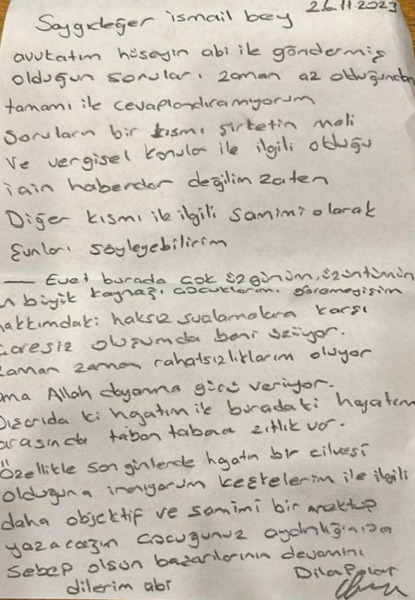 26.11.2023
Saygıdeğer ismail bey
avukatım hüseyin abi ile göndermiş
olduğun soruları zaman az olduğundan
tamamı ile cevaplandıramıyorum
Soruların bir kısmı şirketin mali
ve vergisel konular ile ilgili olduğu
için haberdar değilim zaten
Diğer kısmı ile ilgili samimi olarak
şunları söyleyebilirim
— Evet burada çok üzgünüm, üzüntümün
büyük kaynağı çocuklarımı göremeyişim
hakkımdaki haksız suçlamalara karşı
çaresiz oluşumda beni üzüyor.
zaman zaman rahatsızlıklarım oluyor
ama Allah dayanma gücü veriyor.
Dışarıda ki hayatım ile buradaki hayatım
arasında taban tabana zıtlık var.
Özellikle son günlerde hayatın bir cilvesi
olduğuna inanıyorum keşkelerim ile ilgili
daha objektif ve samimi bir mektup
yazacağım çocuğunuz aydınlığınıza
sebep olsun başarılarının devamını
dilerim abi
Dila Polat